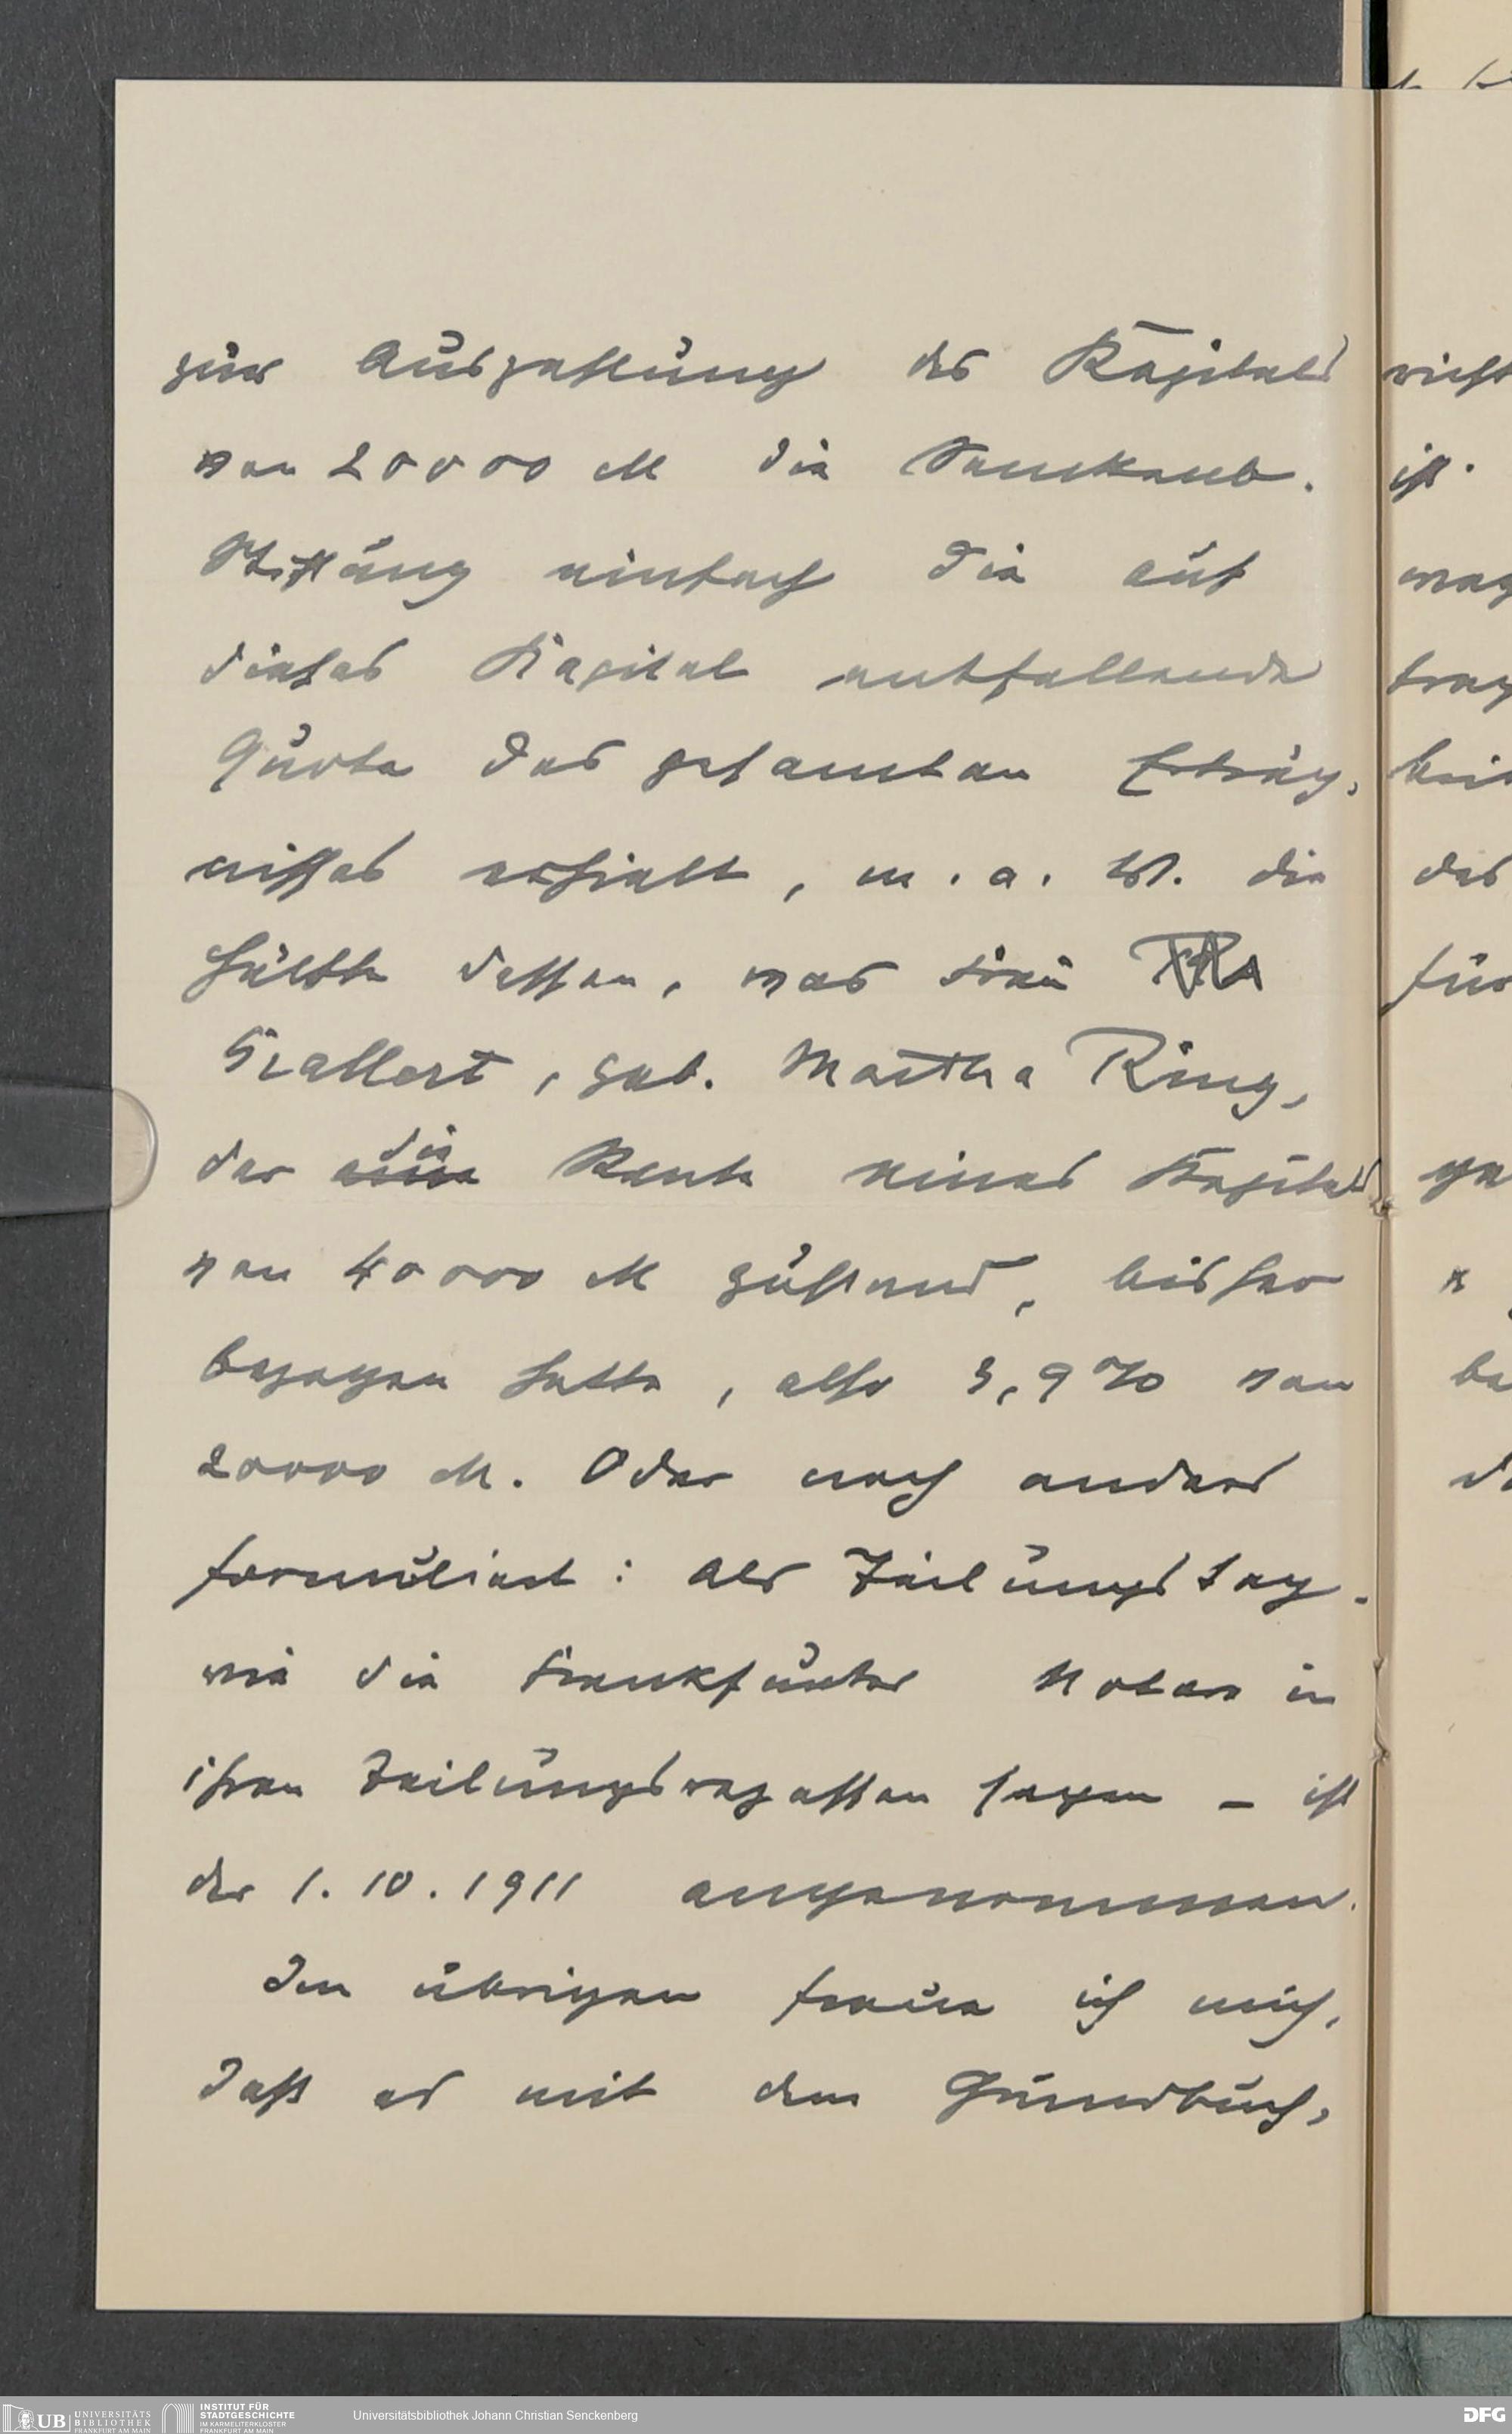 zur Auszahlung des Kapitals
von 20000 M die Senckenb.
Stiftung einfach die auf
dieses Kapital entfallende
Quote des gesamten Erträg-
nisses erhielt, m. a. W. die
Hälfte dessen, was Frau
Grallert, geb. Martha Ring,
der eine die Rente eines Kapitals
von 40000 M zustand, bisher
bezogen hatte, also 3,9% von
20000 M. Oder noch anders
formuliert: als Teilungstag -
wie die Frankfurter Notare in
ihren Teilungsrezessen sagen - ist
der 1.10.1911 angenommen.
Im übrigen freue ich mich,
daß es mit dem Grundbuch-
ist.
das
für
UB UNIVERSITÄTS
BIBLIOTHEK
FRANKFURT AM MAIN
INSTITUT FÜR
STADTGESCHICHTE
IM KARMELITERKLOSTER
FRANKFURT AM MAIN
Universitätsbibliothek Johann Christian Senckenberg
DFG